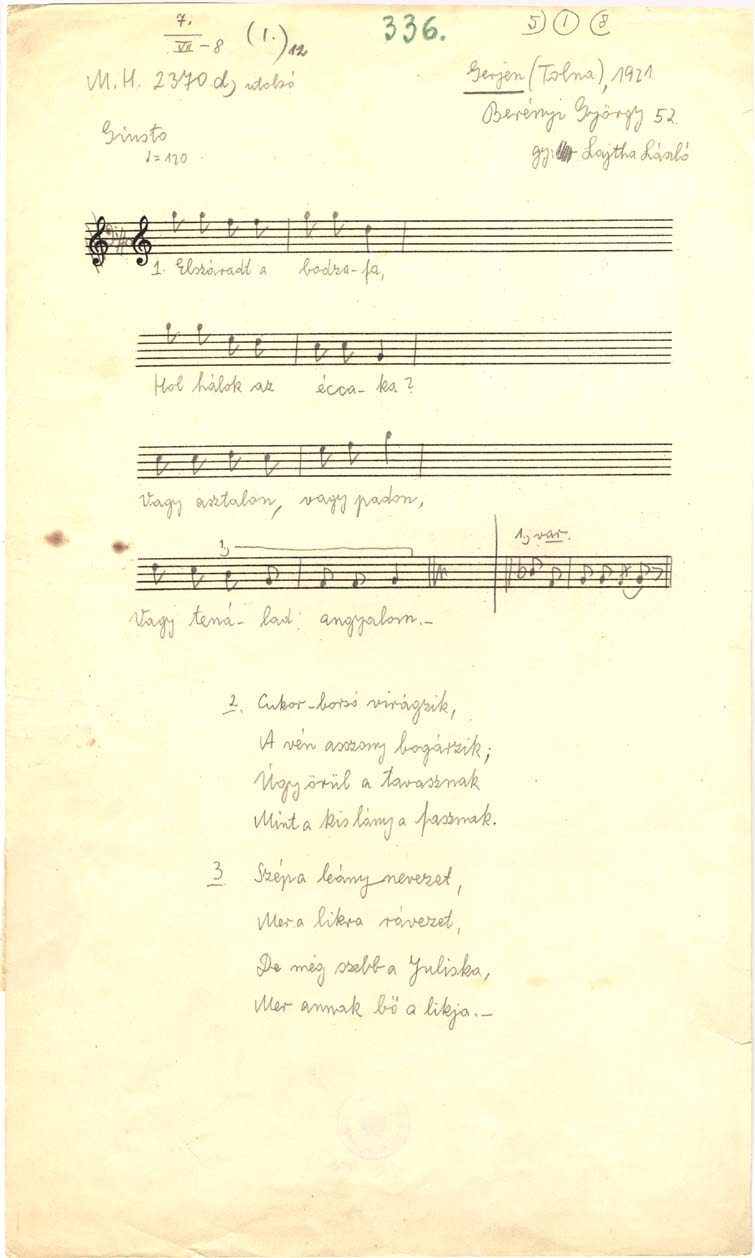 7. VII - 8 (1.) 12
336.
5) 1 8
M.H. 2370 d, utolsó
Gerjen (Tolna), 1921
Berényi György 52.
Giusto
♩=120
gy: Lajtha László
1. Elszáradt a bodza-fa,
Hol hálok az écca-ka?
Vagy asztalon, vagy padon,
1,
1, var.
Vagy tená-lad angyalom.-
2. Cukor-borsó virágzik,
A vén asszony bogárzik;
Úgy örül a tavasznak
Mint a kis lány a fasznak.
3 Szép a leány nevezet,
Mer a likra rávezet,
De még szebb a Juliska,
Mer annak bő a likja.-